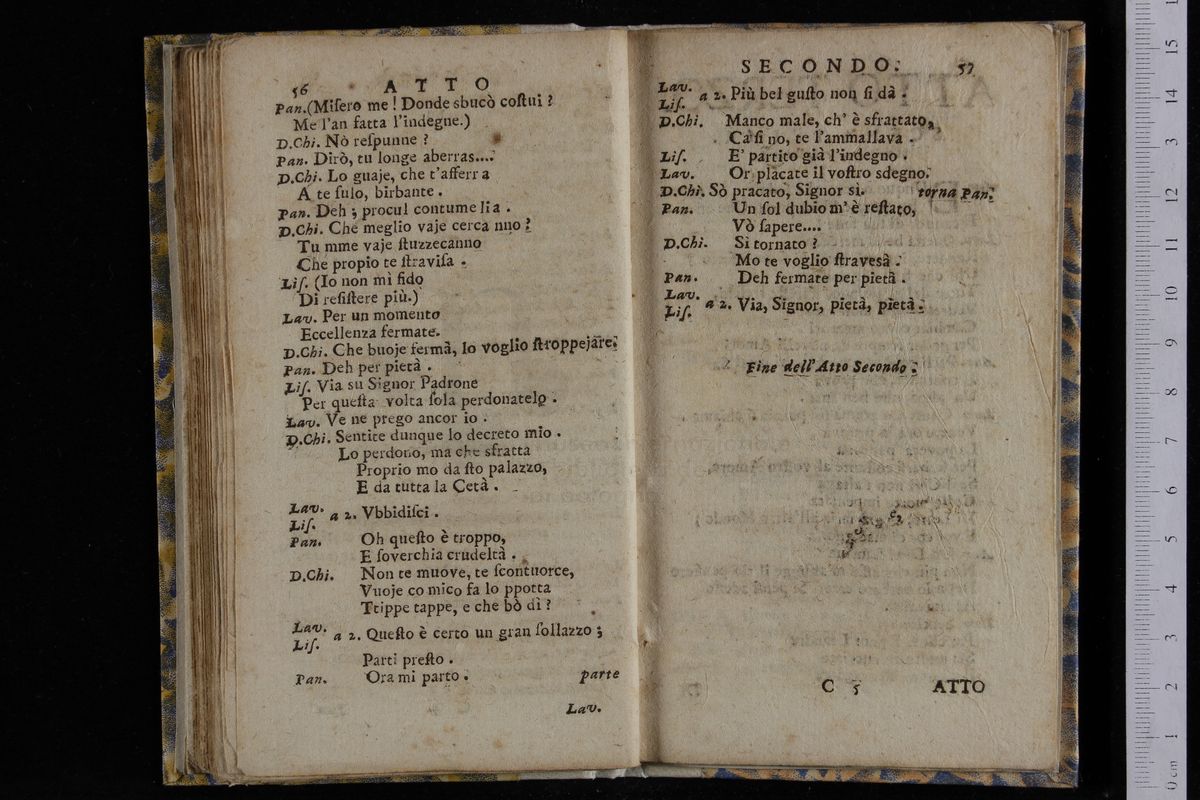 56 ATTO
Pan.(Miſero me ! Donde sbucò coſtui ?
Me l'an fatta l'indegne.)
D.Chi. Nò reſpunne ?
Pan. Dirò, tu longe aberras....
D.Chi. Lo guaje, che t'afferra
A te ſulo, birbante .
Pan. Deh ; procul contumelia .
D.Chi. Che meglio vaje cerca nno ?
Tu mme vaje ſtuzzecanno
Che propio te ſtraviſa .
Liſ. (Io non mi fido
Di reſiſtere più.)
Lav. Per un momento
Eccellenza fermate.
D.Chi. Che buoje fermà, lo voglio ſtroppejare.
Pan. Deh per pietà .
Liſ. Via su Signor Padrone
Per queſta volta ſola perdonatelo .
Lav. Ve ne prego ancor io .
D.Chi. Sentite dunque lo decreto mio .
Lo perdono, ma che sfratta
Proprio mo da ſto palazzo,
E da tutta la Cetà .
Lav.
Liſ. a 2. Vbbidiſci .
Pan. Oh queſto è troppo,
E ſoverchia crudeltà .
D.Chi. Non te muove, te ſcontuorce,
Vuoje co mico fa lo ppotta
Ttippe tappe, e che bò di ?
Lav.
Liſ. a 2. Queſto è certo un gran ſollazzo ;
Parti preſto .
Pan. Ora mi parto . parte
Lav.
SECONDO. 57
Lav.
Liſ. a 2. Più bel guſto non ſi dà .
D.Chi. Manco male, ch' è sfrattato,
Ca ſi no, te l'ammallava .
Liſ. E' partito già l'indegno .
Lav. Or placate il voſtro sdegno.
D.Chi. Sò pracato, Signor si. torna Pan.
Pan. Un ſol dubio m' è reſtato,
Vò ſapere....
D.Chi. Si tornato ?
Mo te voglio ſtravesà .
Pan. Deh fermate per pietà .
Lav.
Liſ. a 2. Via, Signor, pietà, pietà.
Fine dell'Atto Secondo .
C 5 ATTO